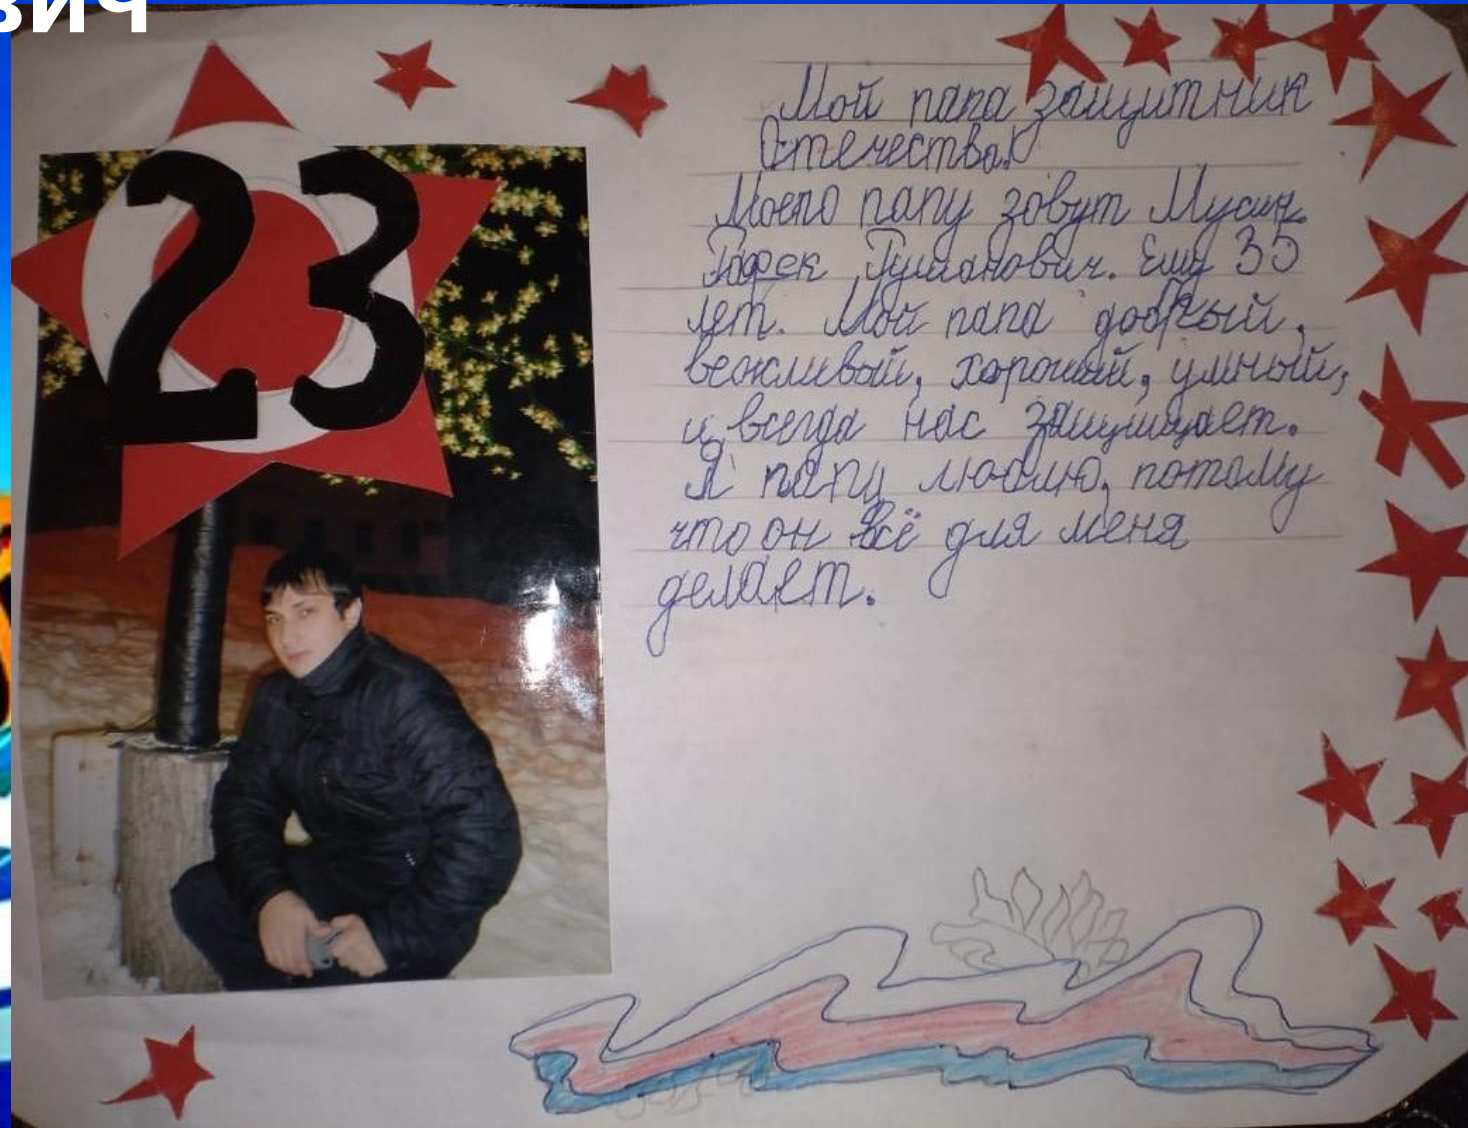 вич
23
Мой папа защитник
Отечества!
Моего папу зовут Мусин
Рафек Гуманович. Ему 35
лет. Мой папа добрый,
вежливый, хороший, умный,
и всегда нас защищает.
Я папу люблю, потому
что он всё для меня
делает.